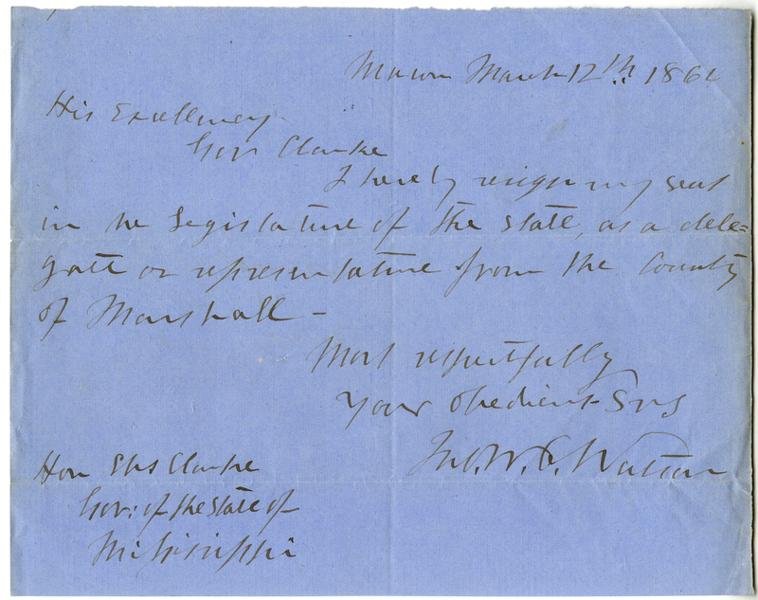 Macon March 12th 1864
His Excellency
Gov Clarke
I hereby resign my seat
in the Legislature of the State, as a dele=
gate or representative from the County
of Marshall -
Most respectfully
Your obedient Svs
Jno. W. C. Watson
Hon Chs Clarke
Gov: of the State of
Mississippi